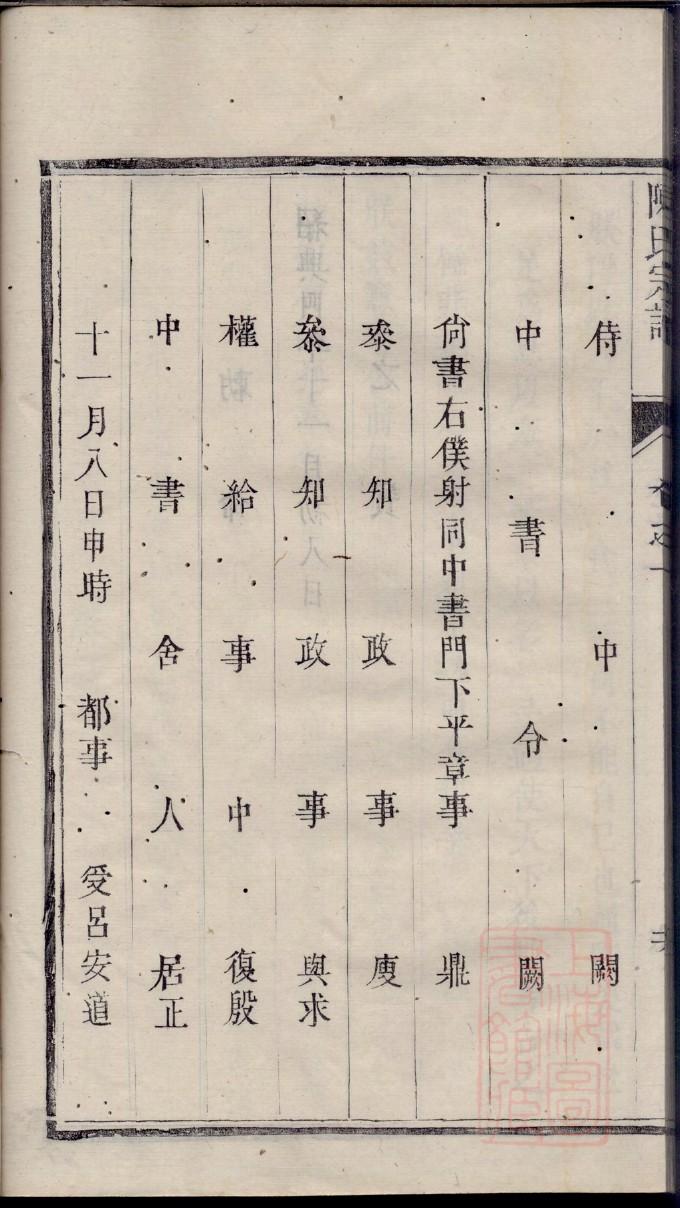 陳氏宗譜
卷之一
侍中 闕
中書令 闕
尙書右僕射同中書門下平章事 鼎
叅知政事 庾
叅知政事 與求
權給事中 復殷
中書舍人 居正
十一月八日申時 都事 受呂安道